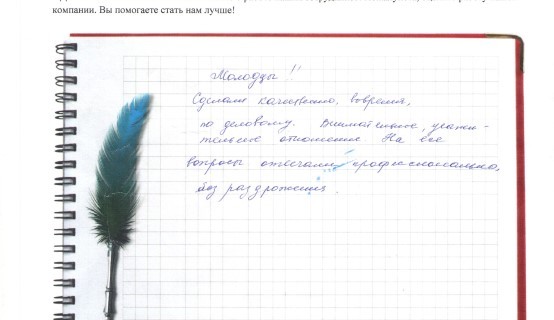 компании. Вы помогаете стать нам лучше!
Молодцы!!
Сделали качественно, вовремя,
по деловому. Внимательное, уважи-
тельное отношение. На все
вопросы отвечали профессионально,
без раздражения.